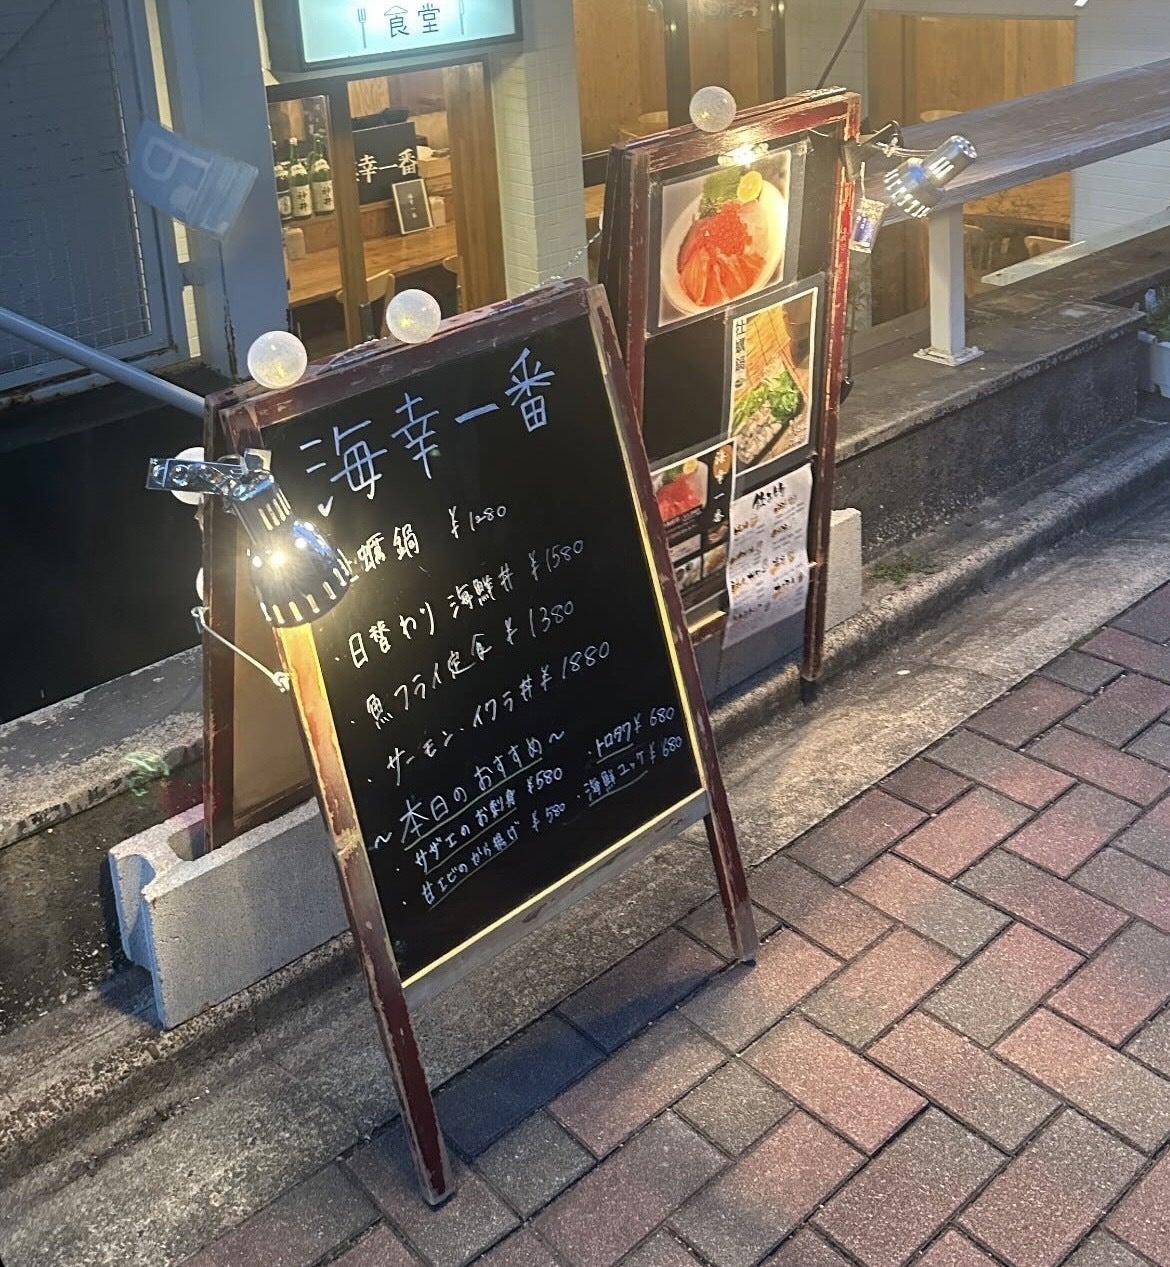 食堂
幸一番
海幸一番
牡蠣鍋 ¥1280
・日替わり 海鮮丼 ¥1580
・魚フライ定食 ¥1380
・サーモン・イクラ丼 ¥1880
〜本日のおすすめ〜
・サザエのお刺身 ¥580
・甘エビのから揚げ ¥580
・トロタク ¥680
・海鮮ユッケ ¥680
牡蠣鍋
海幸一番